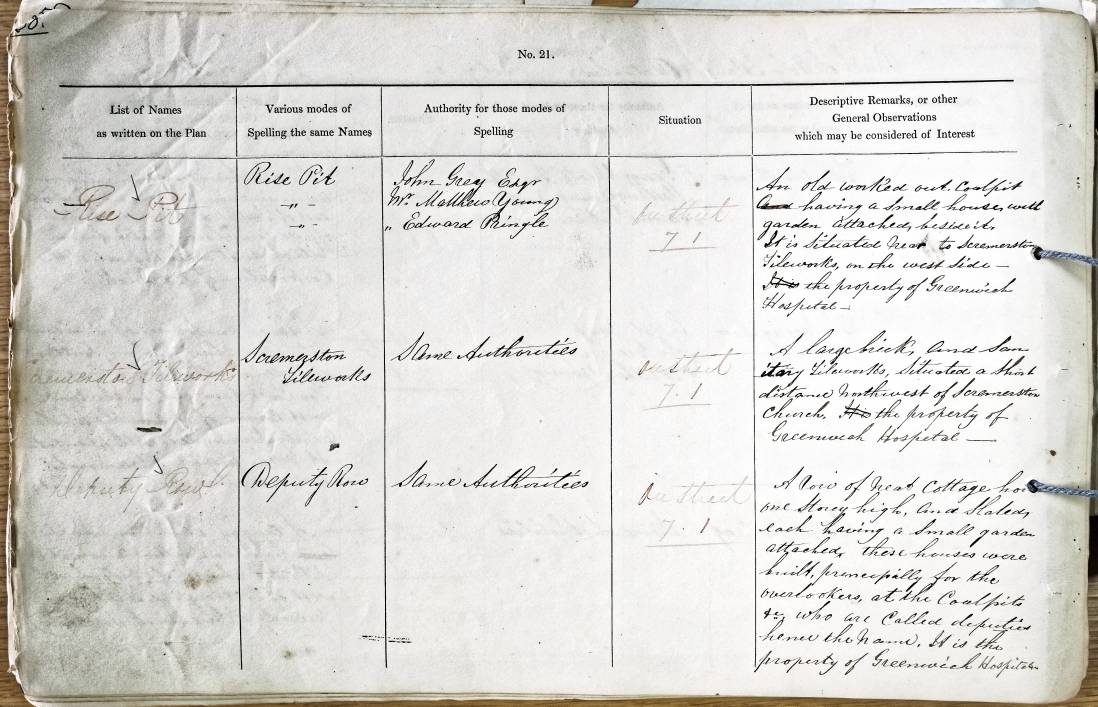 No. 21.
List of Names
as written on the Plan
Various modes of
Spelling the same Names
Authority for those modes of
Spelling
Situation
Descriptive Remarks, or other
General Observations
which may be considered of Interest
Rise Pit
Rise Pit
" -
" -
John Grey Esqr
Mr. Matthew Young
" Edward Pringle
on sheet
7 1
An old worked out Coalpit
and having a Small house, with
garden attached, beside it.
It is Situated Near to Scremerston
Tileworks, on the west Side —
It is the property of Greenwich
Hospital —
Scremerston Tileworks
Scremerston
Tileworks
Same Authorities
on sheet
7. 1
A large brick, and San
itary Tileworks, Situated a Short
distance Northwest of Scremerston
Church. It is the property of
Greenwich Hospital —
Deputy Row
Deputy Row
Same Authorities
on sheet
7. 1
A Row of Neat Cottage hou
one Storey high, and Slated,
each having a Small garden
attached, these houses were
built, principally for the
overlookers, at the Coalpits
&c. who are Called deputies
hence the Name. It is the
property of Greenwich Hospital